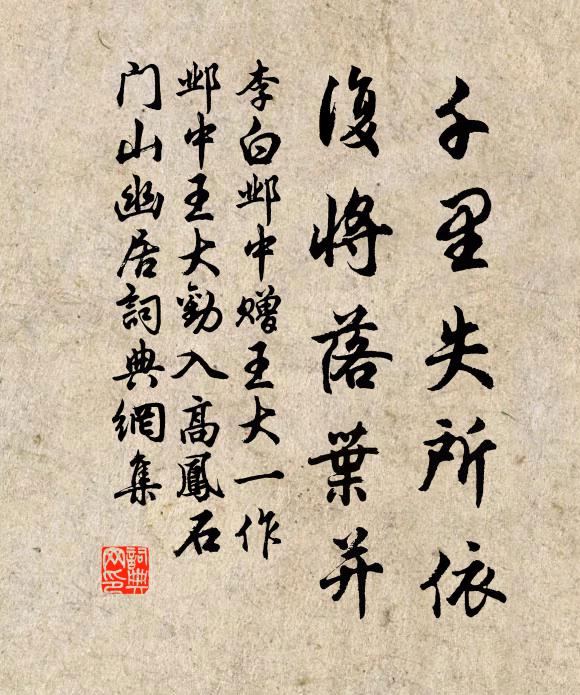 千里失所依
復將落葉并
李白邺中赠王大一作
邺中王大勸入高鳳石
门山幽居詞典網集
詞典网印